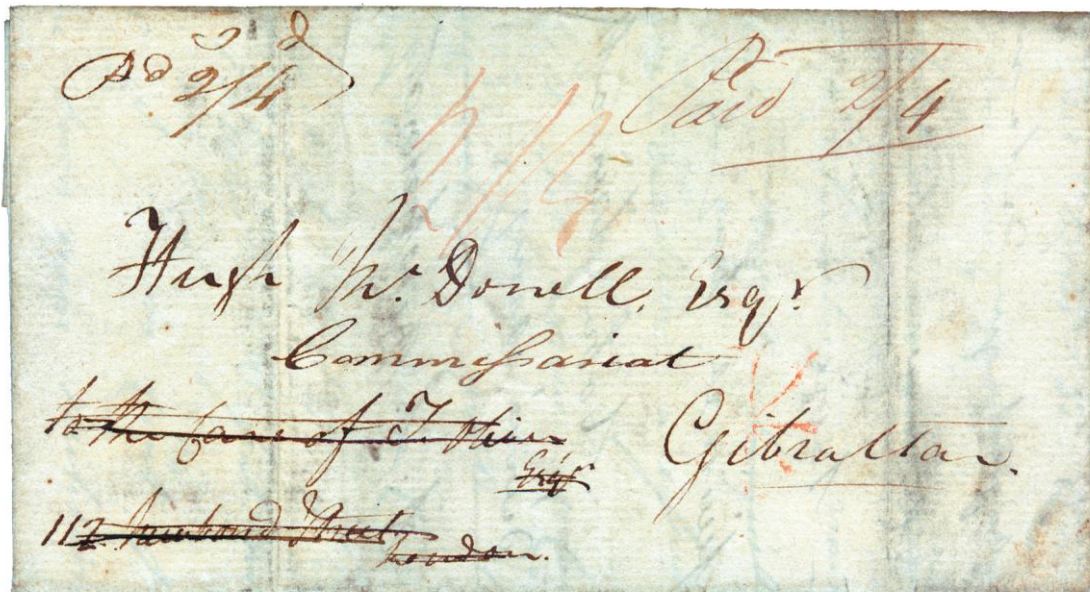 Pd 2/4d
Paid 2/4
2/4
Hugh Mc. Donell, Esqr.
Commissariat
to the Care of T.
Esqr
Gibraltar.
112 Street
London.